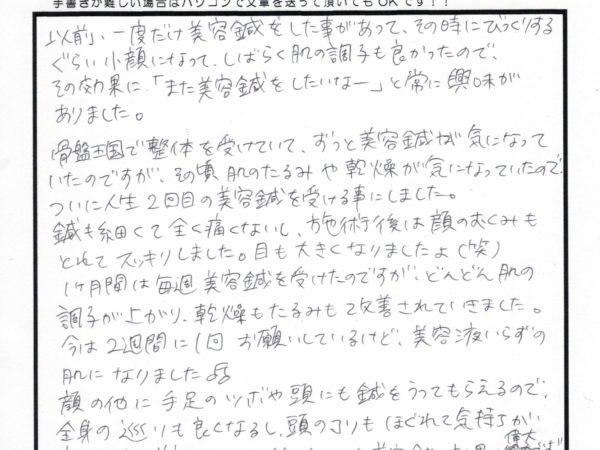 手書きが難しい場合はパソコンで文章を送って頂いてもOKです!!
以前、一度だけ美容鍼をした事があって、その時にびっくりする
ぐらい小顔になって、しばらく肌の調子も良かったので、
その効果に、「また美容鍼をしたいなー」と常に興味が
ありました。
骨盤王国で整体を受けていて、ずっと美容鍼が気になって
いたのですが、その頃肌のたるみや乾燥が気になっていたので
ついに人生2回目の美容鍼を受ける事にしました。
鍼も細くて全く痛くないし、施術後は顔のむくみも
とれてスッキリしました。目も大きくなりましたよ(笑)
1ヶ月間は毎週美容鍼を受けたのですが、どんどん肌の
調子が上がり、乾燥もたるみも改善されていきました。
今は2週間に1回お願いしているけど、美容液いらずの
肌になりました
顔の他に手足のツボや頭にも鍼をうってもらえるので、
全身の巡りも良くなるし、頭のコリもほぐれて気持ちが
偉大